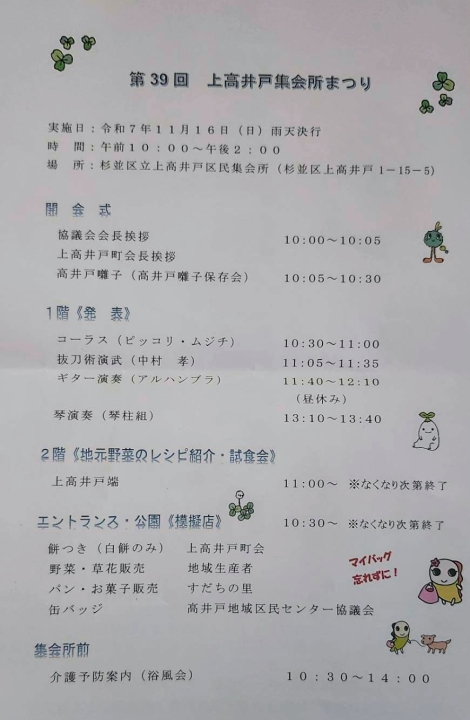 第39回 上高井戸集会所まつり
実施日：令和7年11月16日（日）雨天決行
時　間：午前10：00～午後2：00
場　所：杉並区立上高井戸区民集会所（杉並区上高井戸1－15－5）
開　会　式
協議会会長挨拶　10:00～10:05
上高井戸町会長挨拶
高井戸囃子（高井戸囃子保存会）　10:05～10:30
1階《発　表》
コーラス（ピッコリ・ムジチ）　10:30～11:00
抜刀術演武（中村　孝）　11:05～11:35
ギター演奏（アルハンブラ）　11:40～12:10
（昼休み）
琴演奏（琴柱組）　13:10～13:40
2階《地元野菜のレシピ紹介・試食会》
上高井戸端　11:00～　※なくなり次第終了
エントランス・公園《模擬店》　10:30～　※なくなり次第終了
餅つき（白餅のみ）　上高井戸町会
野菜・草花販売　地域生産者
パン・お菓子販売　すだちの里
缶バッジ　高井戸地域区民センター協議会
マイバッグ
忘れずに！
集会所前
介護予防案内（浴風会）　10：30～14：00